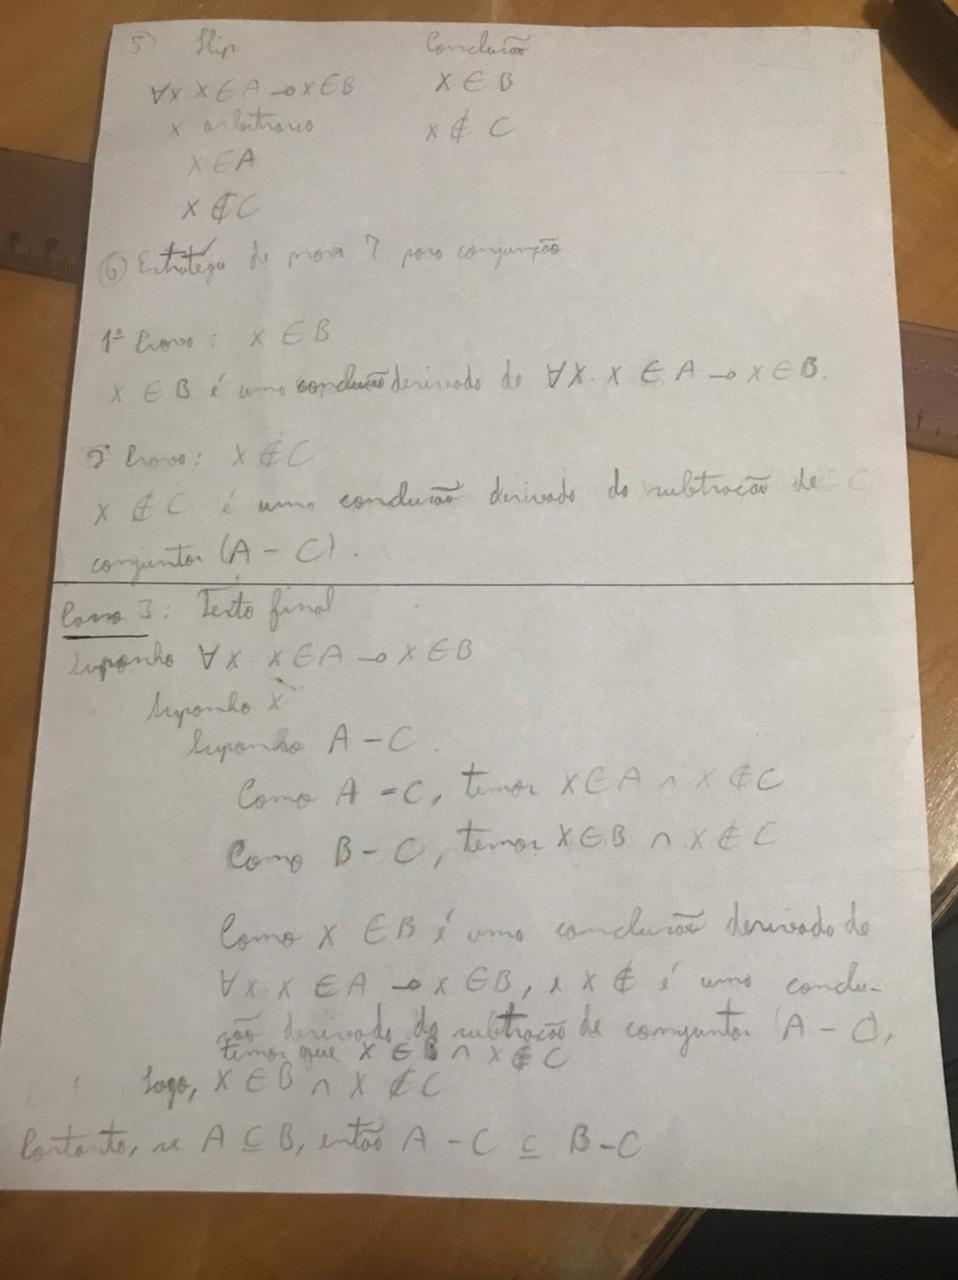 5) Hip Conclusão
∀x x ∈ A → x ∈ B x ∈ B
x arbitrario x ∉ C
x ∈ A
x ∉ C
⑥ Estratégia de prova 7 para conjunção
1ª Prova: x ∈ B
x ∈ B é uma conclusão derivada de ∀x. x ∈ A → x ∈ B.
2ª Prova: x ∉ C
x ∉ C é uma conclusão derivada da subtração de
conjuntos (A - C).
Passo 3: Texto final
Suponha ∀x x ∈ A → x ∈ B
Suponha x
Suponha A - C.
Como A - C, temos x ∈ A ∩ x ∉ C
Como B - C, temos x ∈ B ∩ x ∉ C
Como x ∈ B é uma conclusão derivada de
∀x. x ∈ A → x ∈ B, e x ∉ é uma conclu-
são derivada da subtração de conjuntos (A - C),
temos que x ∈ B ∩ x ∉ C
Logo, x ∈ B ∩ x ∉ C
Portanto, se A ⊆ B, então A - C ⊆ B - C